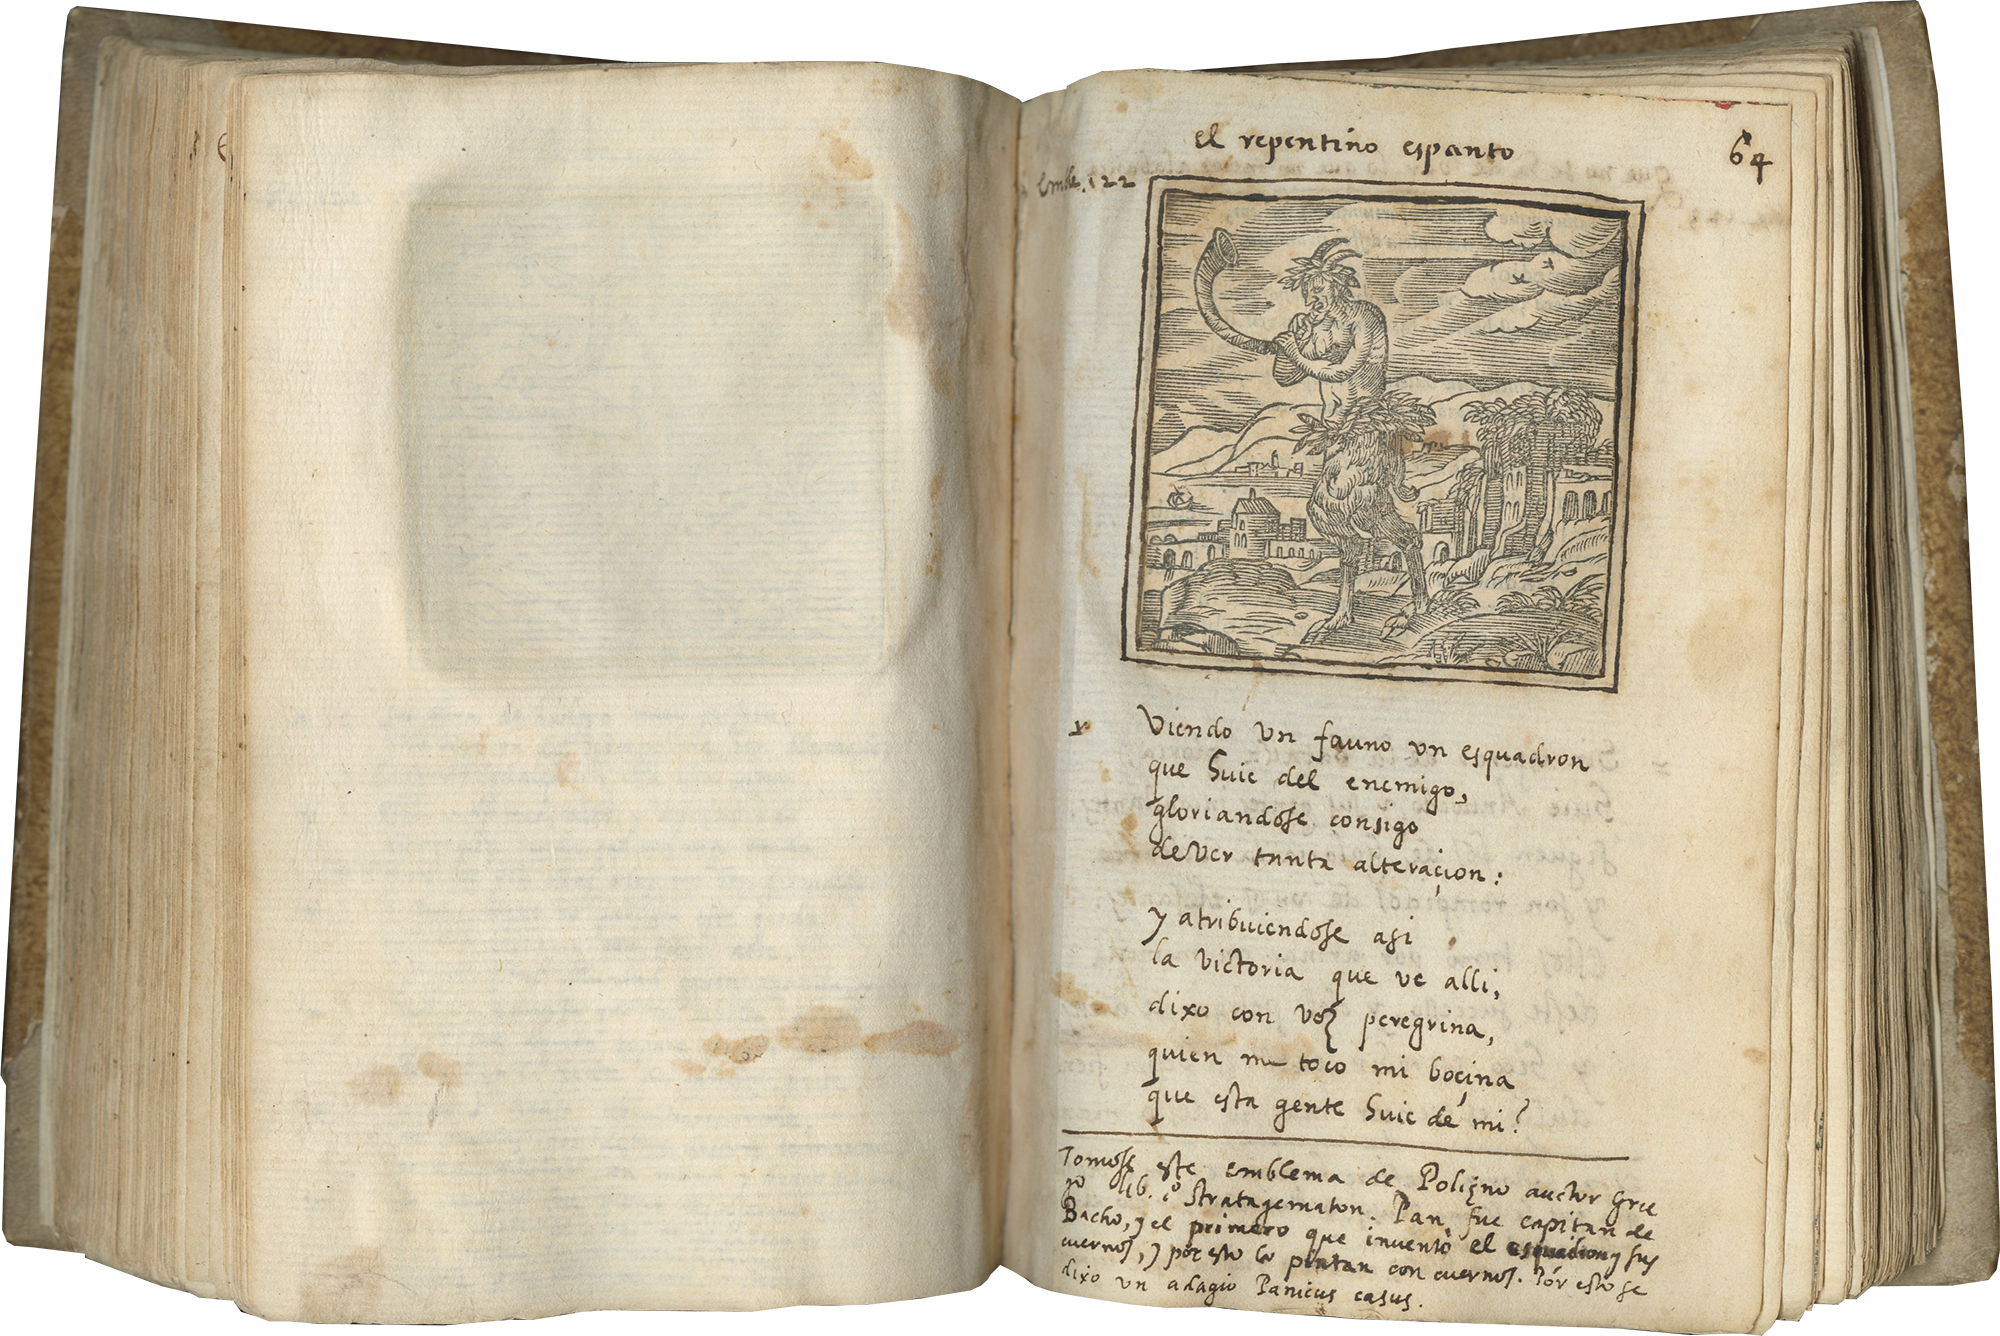 el repentino espanto
64
Emble. 122
Viendo vn fauno vn esquadron
que huie del enemigo,
gloriandose consigo
de ver tanta alteraçion:
y atribuiendose asi
la victoria que ve alli,
dixo con voz peregrina,
quien me toco mi boçina
que esta gente huie de mi?
Tomose este emblema de Polięno auctor Grie
go lib. 1º Stratagematon. Pan, fue capitan de
Bacho, y el primero que inventò el esquadron y sus
cuernos, y por esto lo pintan con cuernos. Por esto se
dixo un adagio Panicus casus.